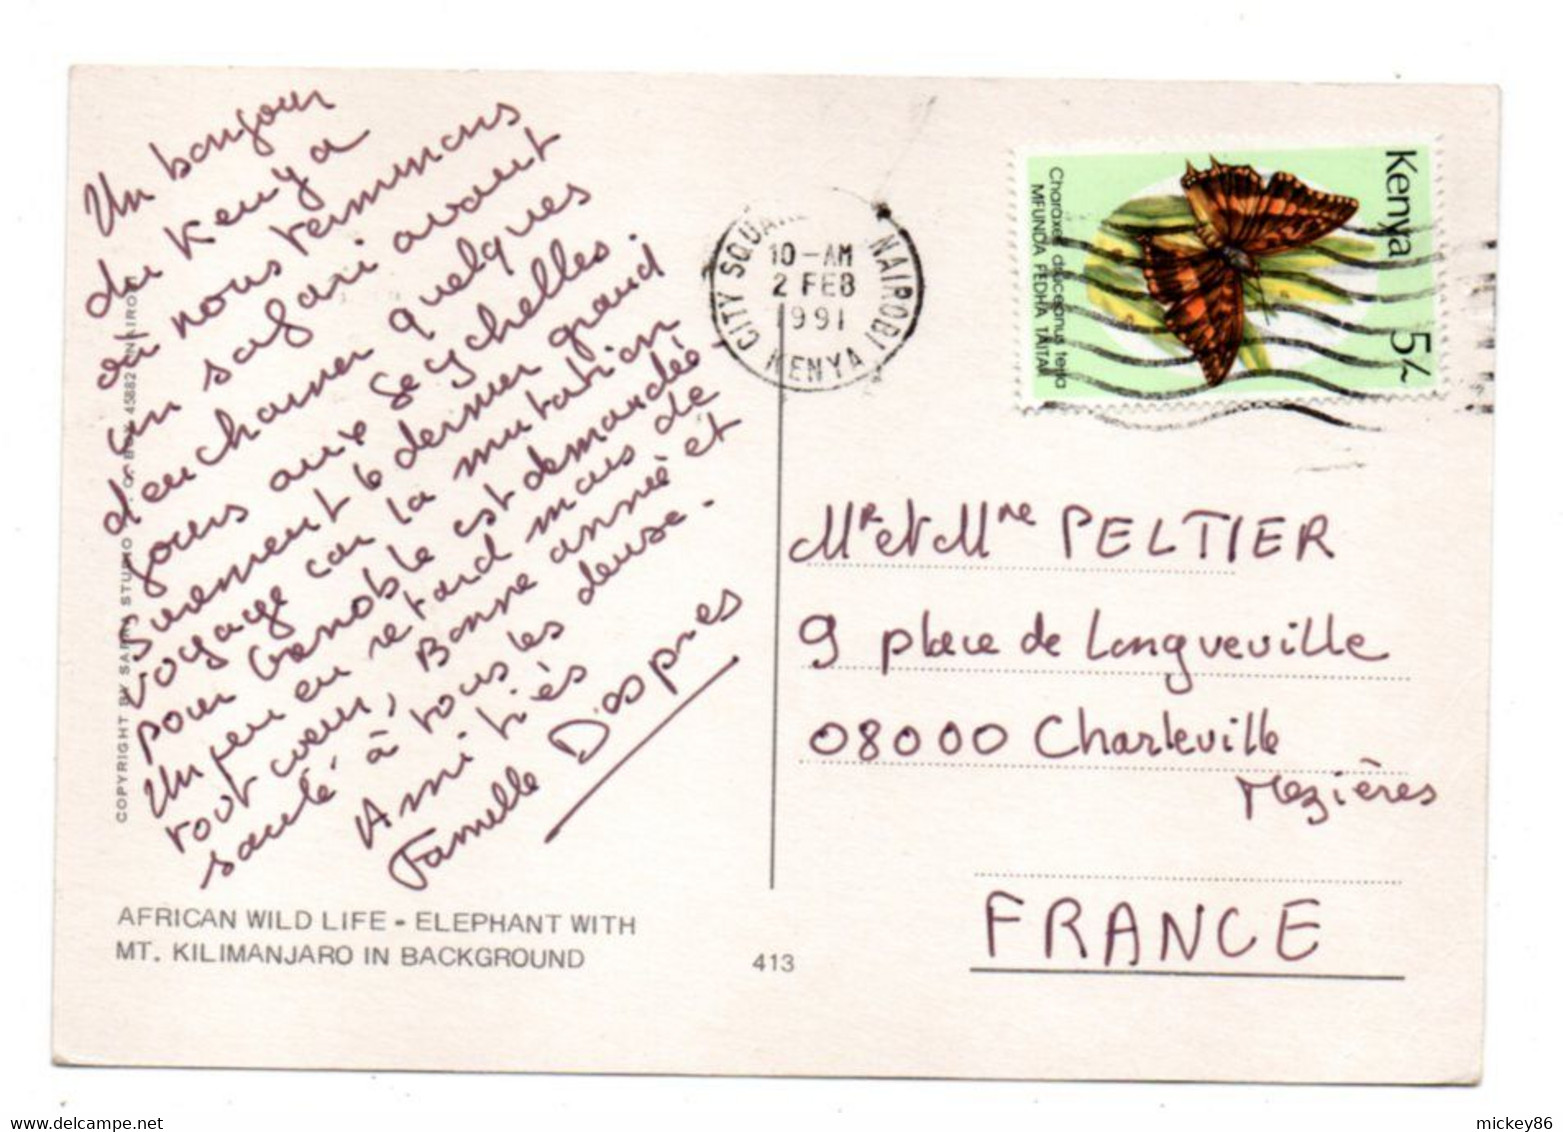 Un bonjour
du Kenya
où nous terminons
un safari avant
d'enchainer quelques
jours aux Seychelles.
Surement le dernier grand
voyage car la mutation
pour Grenoble est demandée
Un peu en retard mais de
tout coeur, Bonne année et
santé à tous les deux.
Amitiés
Famille Després
COPYRIGHT BY SAPRA STUDIO P.O. BOX 45882 NAIROBI
AFRICAN WILD LIFE - ELEPHANT WITH
MT. KILIMANJARO IN BACKGROUND
413
CITY SQUARE NAIROBI
10-AM
2 FEB
1991
KENYA
Kenya
5/-
Charaxes druceanus teita
MFUNDA FEDHA TAITA
Mr et Mme PELTIER
9 place de Longueville
08000 Charleville
Mezières
FRANCE
mickey86